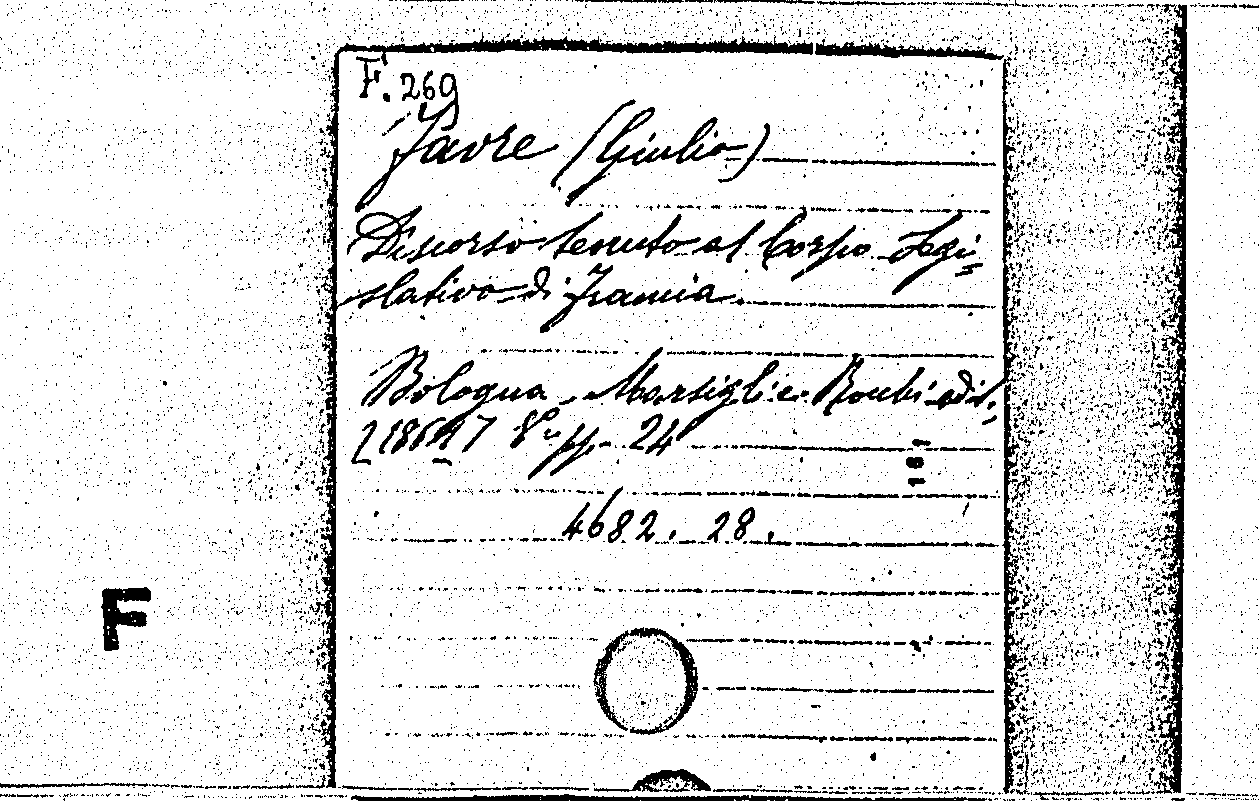 F. 269
Favre (Giulio)
Discorso tenuto al Corpo Legi=
slativo di Francia.
Bologna, Marsigli e Rocchi edit.,
[1864] 8º pp. 24
4682. 28.
181
F